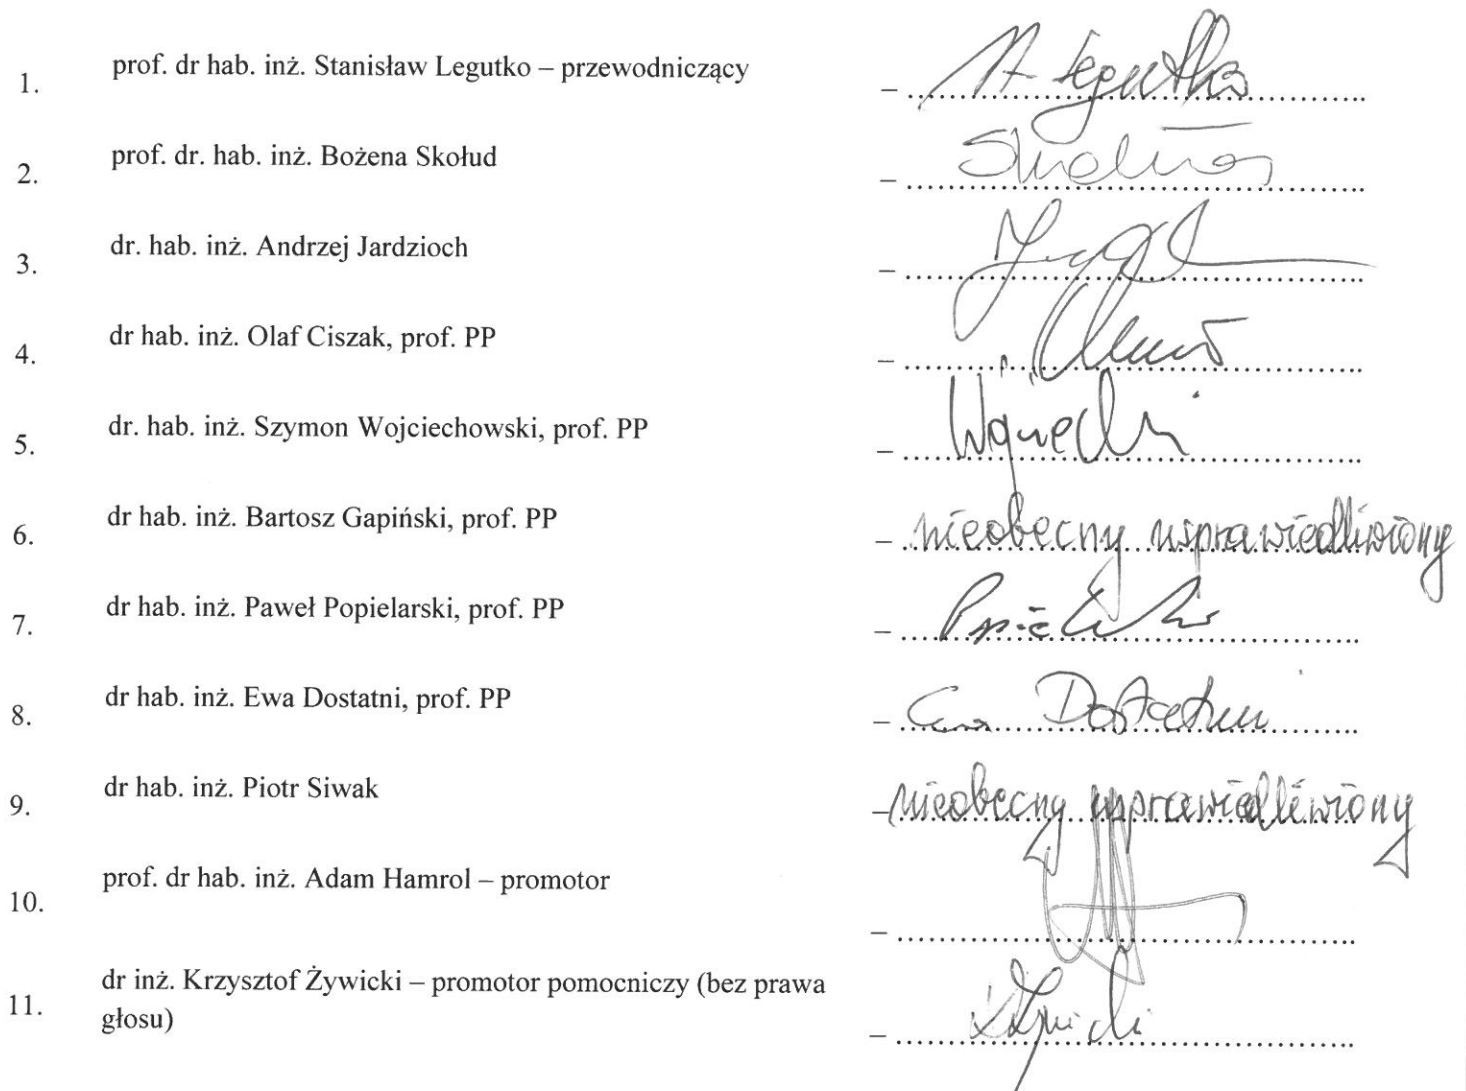 1. prof. dr hab. inż. Stanisław Legutko – przewodniczący – St. Legutko
2. prof. dr. hab. inż. Bożena Skołud –
3. dr. hab. inż. Andrzej Jardzioch –
4. dr hab. inż. Olaf Ciszak, prof. PP –
5. dr. hab. inż. Szymon Wojciechowski, prof. PP –
6. dr hab. inż. Bartosz Gapiński, prof. PP – nieobecny usprawiedliwiony
7. dr hab. inż. Paweł Popielarski, prof. PP –
8. dr hab. inż. Ewa Dostatni, prof. PP – Ewa Dostatni
9. dr hab. inż. Piotr Siwak – nieobecny usprawiedliwiony
10. prof. dr hab. inż. Adam Hamrol – promotor –
11. dr inż. Krzysztof Żywicki – promotor pomocniczy (bez prawa
głosu) –